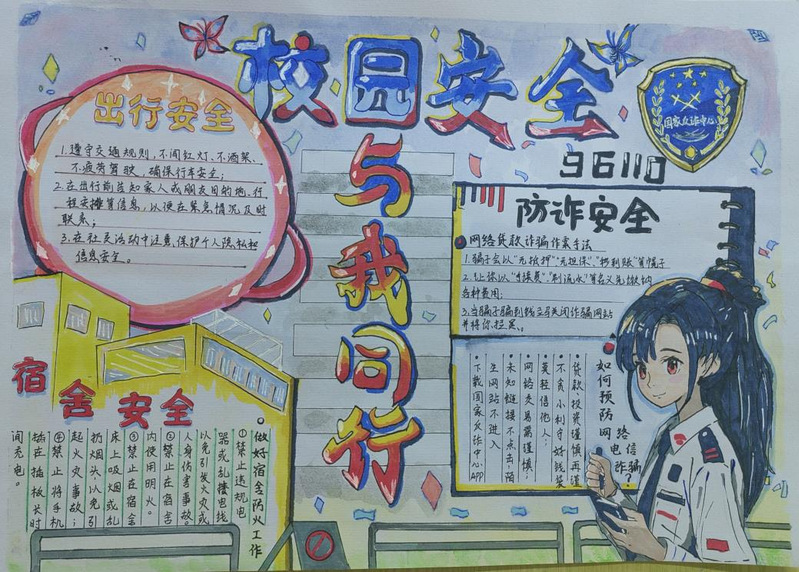 校园安全
与我同行
国家反诈中心
96110
出行安全
1.遵守交通规则,不闯红灯、不酒驾、
不疲劳驾驶,确保行车安全;
2.在出行前告知家人或朋友目的地、行
程安排等信息,以便在紧急情况及时
联系;
3.在社交活动中注意保护个人隐私和
信息安全。
防诈安全
网络贷款诈骗作案手法
1.骗子会以“无抵押”“无担保”、
2.让你以“手续费”、“刷流水”等名义先缴纳
各种费用;
3.当骗子骗到钱会关闭诈骗网站
并将你拉黑。
如何预防
网络
电信
诈骗?
贷款、投资谨慎再谨
不贪小利守好钱袋
莫轻信他人;
网络交易需谨慎;
未知链接不点击,陌
生网站不进入
下载国家反诈中心APP
宿舍安全
做好宿舍防火工作
①禁止违规电
器或乱搭电线
以免引发火灾或
人身伤害事故。
②禁止在宿舍
内使用明火。
③禁止在宿舍
床上吸烟或乱
扔烟头,以免引
起火灾事故;
④禁止将手机
插在插板长时
间充电。